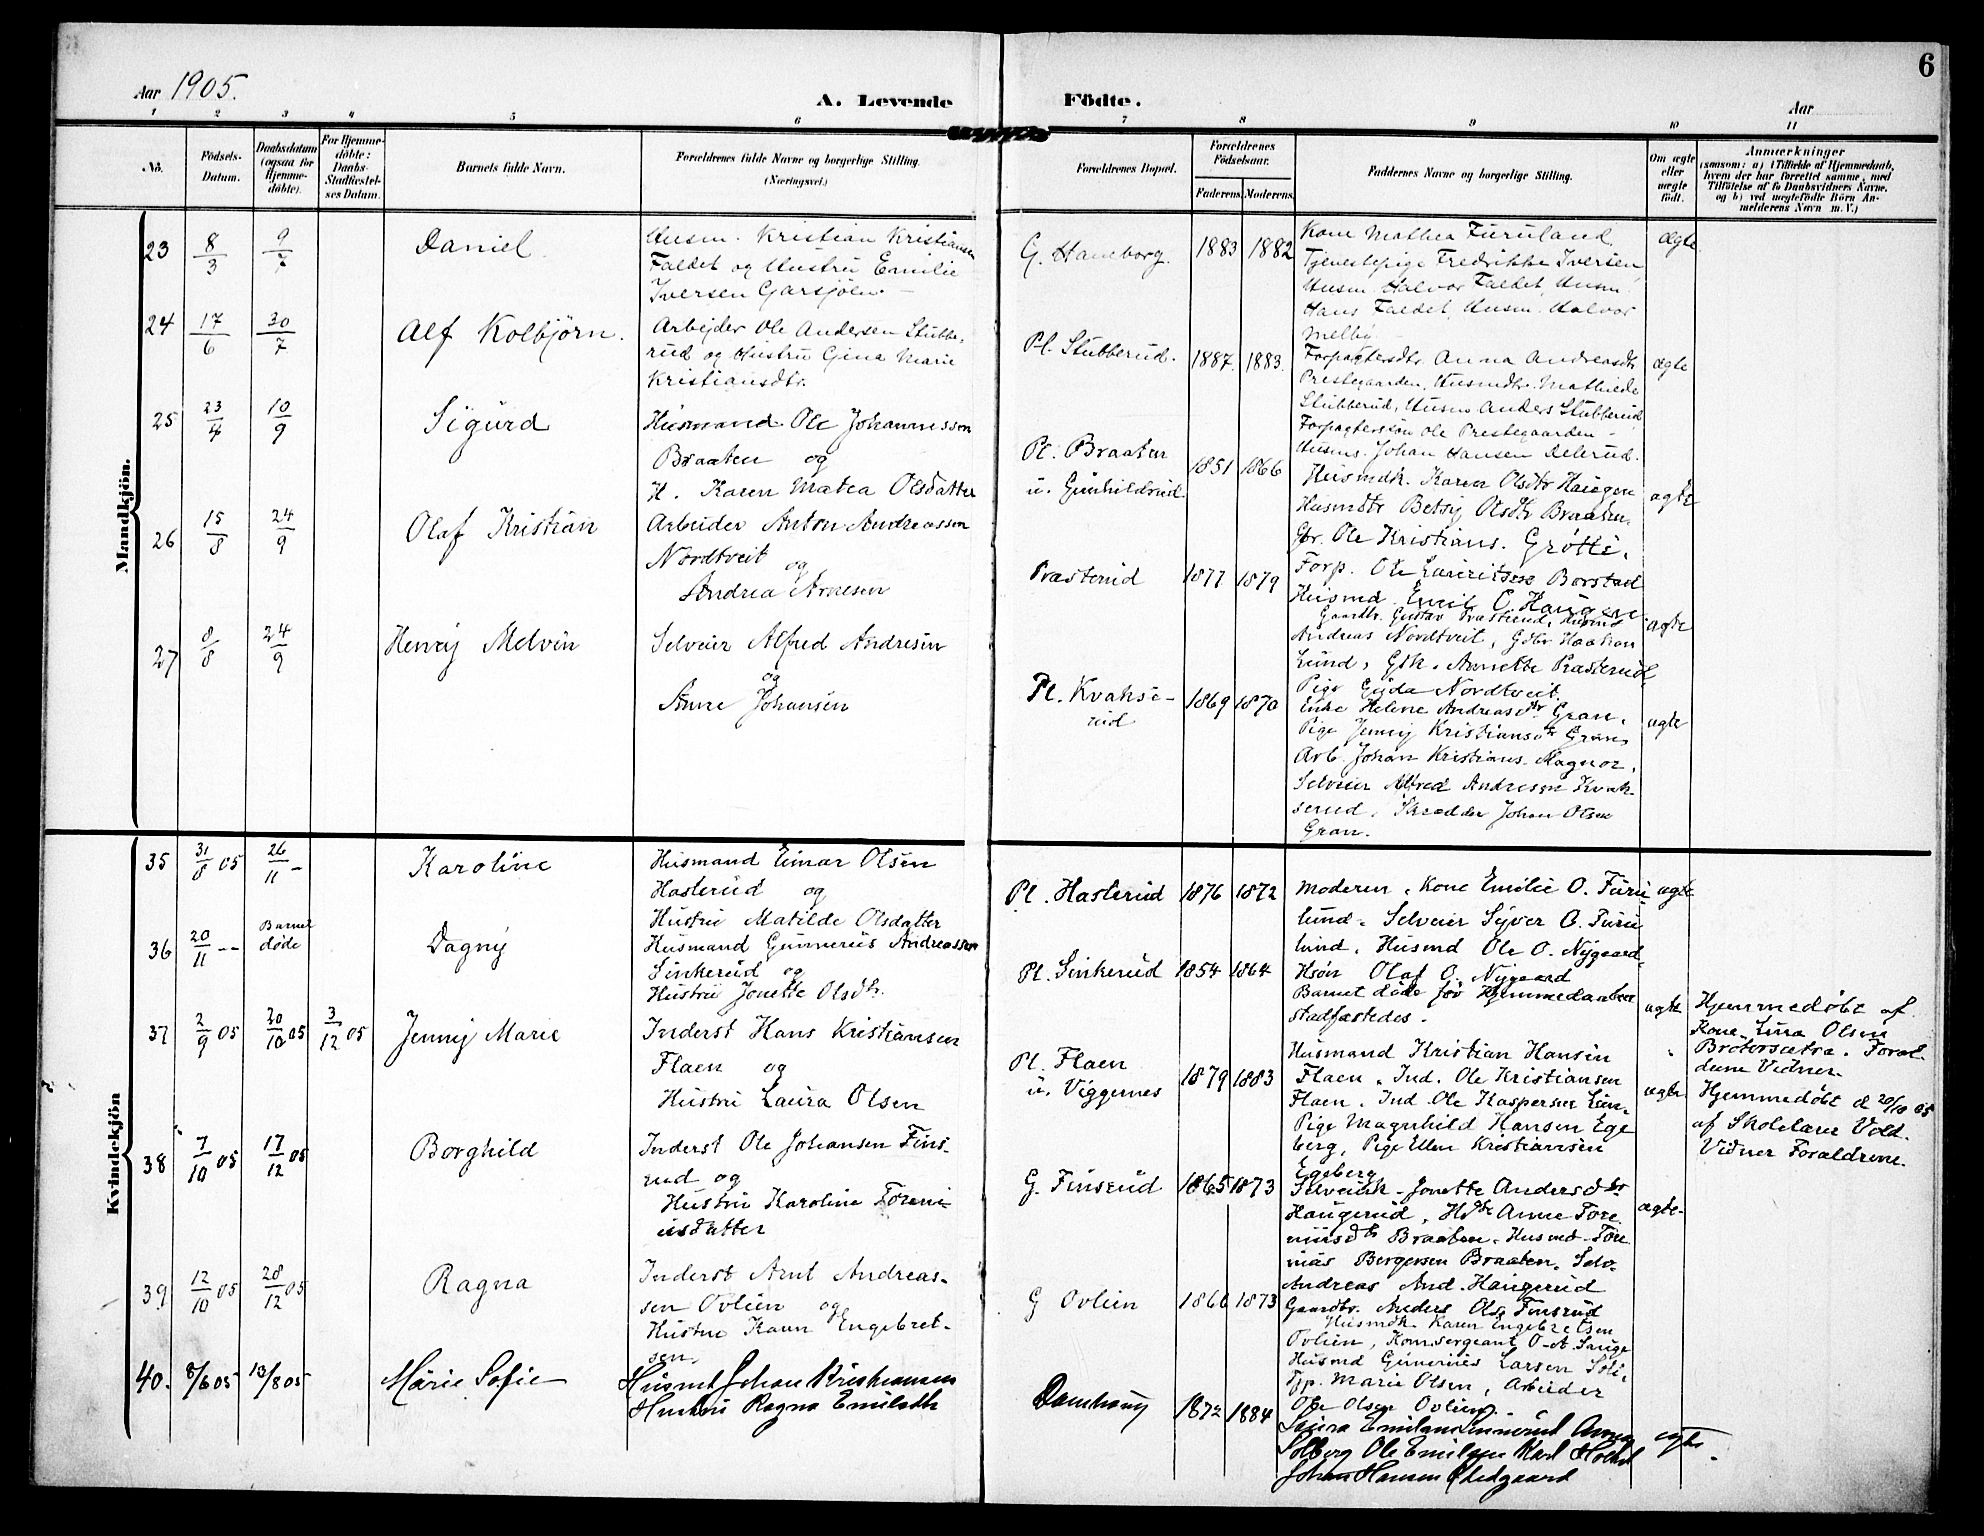 6
Aar 1905.
A. Levende Födte.
Aar
1 2 3 4 5 6 7 8 9 10 11
No.
Födsels-
Datum.
Daabsdatum
(ogsaa for
Hjemme-
döbte).
For Hjemme-
döbte:
Daabs-
Stadfæstel-
ses Datum.
Barnets fulde Navn.
Forældrenes fulde Navne og borgerlige Stilling.
(Næringsvei.)
Forældrenes Bopæl.
Forældrenes
Födselsaar.
Faderens. Moderens.
Faddernes Navne og borgerlige Stilling.
Om ægte
eller
uægte
födt.
Anmærkninger
(saasom: a) i Tilfælde af Hjemmedaab,
hvem der har forrettet samme, med
Tilföielse af to Daabsvidners Navne,
og b) ved uægtefödte Börn An-
melderens Navn m. V.)
Mandkjön.
23 8/3 9/7 Daniel
Husm. Kristian Kristiansen
Faldet og Hustru Emilie
Iversen Garsjöen
G. Haneborg. 1883 1882
Kone Mathea Furuland
Tjenestepige Fredrikke Iversen
Husm. Halvor Faldet, Husm.
Hans Faldet, Husm. Halvor
Melby
Ægte
24 17/6 30/7 Alf Kolbjörn.
Arbejder Ole Andersen Stubbe-
rud og Hustru Gina Marie
Kristiansdtr.
Pl. Stubberud. 1887. 1883.
Forpagtersdtr. Anna Andreasdtr
Prestegaarden, Husmdtr. Mathilde
Stubberud, Husm Anders Stubberud
Forpagtersön Ole Prestegaarden
Husm. Johan Hansen
ægte
25 23/4 10/9 Sigurd
Husmand Ole Johannesson
Braaten og
H. Karen Matea Olsdatter
Pl. Braaten
u. Gunhildrud 1851 1866
Husmdk. Karen Olsdtr Haugen
Husmdtr Betsy Olsdtr Braaten.
Gbr. Ole Kristians. Grøtte.
Forp. Ole Lauritsen Borstad
Husmd. Emil O. Haugen
ægte
26 15/8 24/9 Olaf Kristian
Arbeider Anton Andreassen
Nordtveit og
Andrea Arnesen
Prasterud 1877 1879
Gaardbr. Gustav Prasterud, Husmd
Andreas Nordtveit, Gdbr Haakon
Lund, Gdk. Annette Prasterud,
Pige Gyda Nordtveit.
ægte
27 8/8 24/9 Henry Melvin
Selveier Alfred Andresen
og
Anne Johansen
Pl. Kvakse-
rud 1869 1870
Enke Helene Andreasdtr Gran,
Pige Jenny Kristiansdtr Gran,
Arb. Johan Kristians. Magnor,
Selveier Alfred Andresen Kvak-
serud, Skrædder Johan Olsen
Gran.
ægte
Kvindekjön
35 31/8 05 26/11 - Karoline
Husmand Einar Olsen
Hasterud og
Hustru Matilde Olsdatter
Pl. Hasterud 1876 1872
Moderen, Kone Emilie O. Furu
lund, Selveier Syver O. Furu
lund, Husmd Ole O. Nygaard,
Hsøn Olaf O. Nygaard
ægte
36 20/11 -- Barnet
døde Dagny
Husmand Gunnerius Andreassen
Sinkerud og
Hustru Jonette Olsdtr.
Pl. Sinkerud 1854 1864
Barnet døde før Hjemmedaaben
stadfæstedes.
ægte
Hjemmedøbt af
Kone Lina Olsen
Brötersætra. Foræl-
drene Vidner.
37 2/9 05 20/10 05 3/12 05 Jenny Marie
Inderst Hans Kristiansen
Flaen og
Hustru Laura Olsen
Pl. Flaen
u. Viggernes 1879 1883
Husmand Kristian Hansen
Flaen, Ind. Ole Kristiansen
Flaen, Ind. Ole Kaspersen Lun,
Pige Magnhild Hansen Ege
berg, Pige Ellen Kristiansen
Egeberg
ægte
Hjemmedöbt d 20/10 05
af Skolelærer Vold.
Vidner Forældrene.
38 7/10 05 17/12 05 Borghild
Inderst Ole Johansen Fins-
rud og
Hustru Karoline Toreni-
usdatter
G. Finsrud 1865 1873
Selveierk. Jonette Andersdtr
Haugerud, Hdtr Anne Tore
niusdtr Braaten, Husmd Tore
nius Bergersen Braaten, Selv.
Andreas And. Haugerud
Gaardbr. Anders Ols. Finsrud
ægte
39 12/10 05 28/12 05 Ragna
Inderst Amt Andreas-
sen Ovlien og
Hustru Karen Engebret-
sen.
G Ovlien 1866 1873
Husmdk. Karen Engebretsen
Ovlien, Kom.sergeant O. A. Sauge
Husmd Gunerius Larsen
Tjp. Marie Olsen, Arbeider
Ole Olsen Ovlien.
40. 8/6 05 13/8 05 Marie Sofie
Husmd Johan Kristiansen
Hustru Ragna Emilsdtr
Damhaug 1872 1884
Laura Emilsen Anna
Solberg Ole Emilsen Karl
Johan Hansen
ægte.